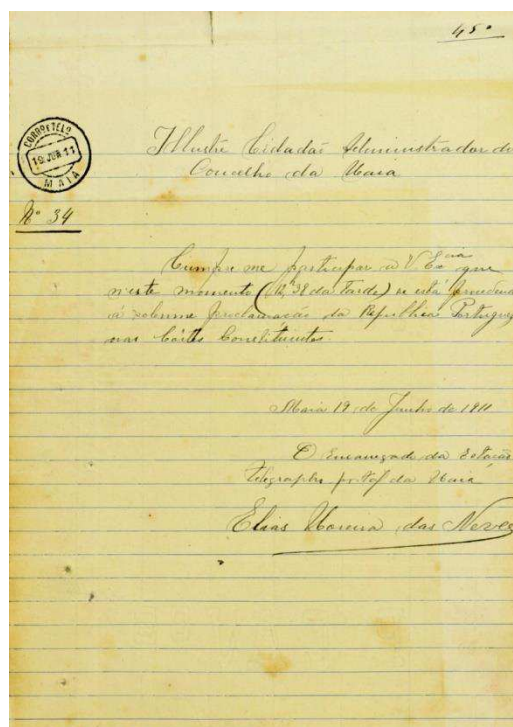 45º
CORREIO TELº
19 JUN 11
MAIA
Illustre Cidadão Administrador do
Concelho da Maia
Nº 34
Cumpre me participar a V. Excia que
n'este momento (2,38 da tarde) se está
á solemne proclamação da Republica Portugueza
nas Côrtes Constituintes.
Maia 19 de Junho de 1911
O Encarregado da Estação
da Maia
Elias Moreira das Neves